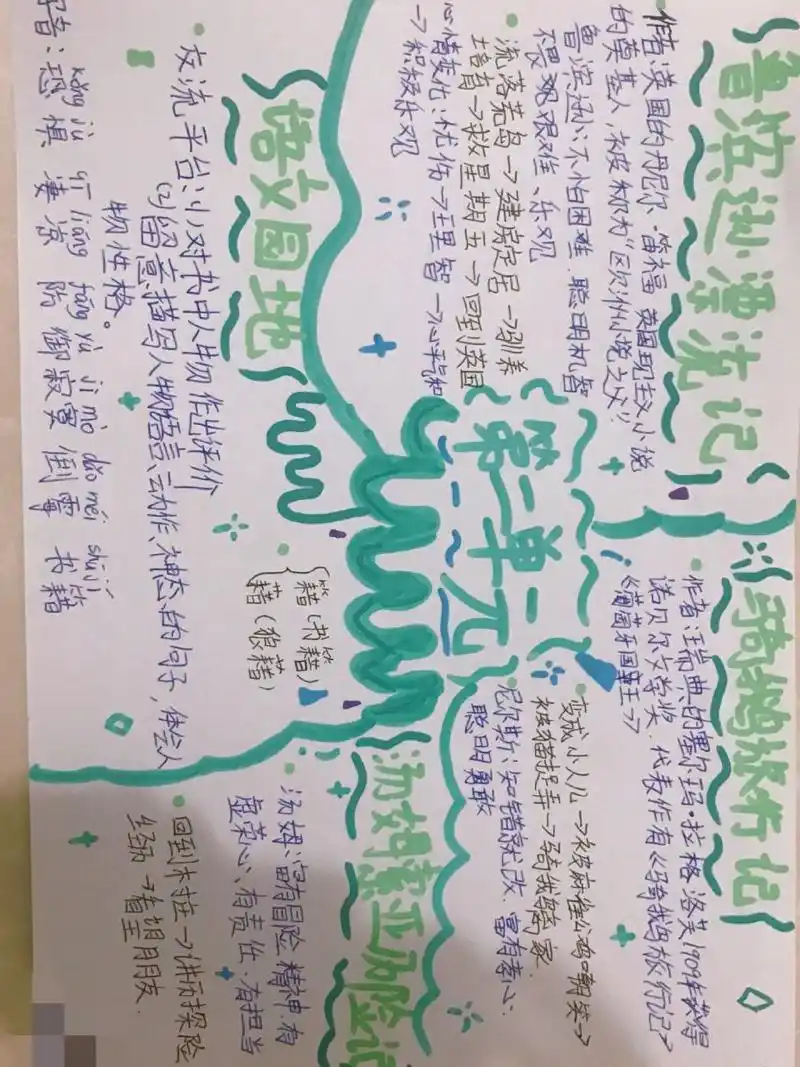 第二单元
鲁滨逊漂流记
作者:英国的丹尼尔·笛福 英国现主义小说
的奠基人,被称为“欧洲小说之父”
鲁滨逊:不怕困难、聪明机智
不畏艰难、乐观
流落荒岛→建房定居→驯养
培育→救星期五→回到英国
心情变化:忧伤→理智→心平气和
→积极乐观
骑鹅旅行记
作者:瑞典的塞尔玛·拉格洛芙1909年获得
诺贝尔文学奖,代表作有《骑鹅旅行记》
《葡萄牙国王》
变成小人儿→被麻雀公鸡嘲笑→
被猫捉弄→骑鹅离家
尼尔斯:知错就改、富有孝心、
聪明勇敢
语文园地
交流平台:(1)对书中人物作出评价
(2)留意描写人物语言、动作、神态的句子,体会人
物性格。
kǒng jù qī liáng fáng yù jì mò dǎo méi shū jí
字音:恐惧 凄凉 防御 寂寞 倒霉 书籍
籍(书籍)
藉(狼藉)
汤姆索亚历险记
汤姆:富有冒险精神有
虚荣心、有责任、有担当
回到村庄→讲历探险
经历→看望朋友